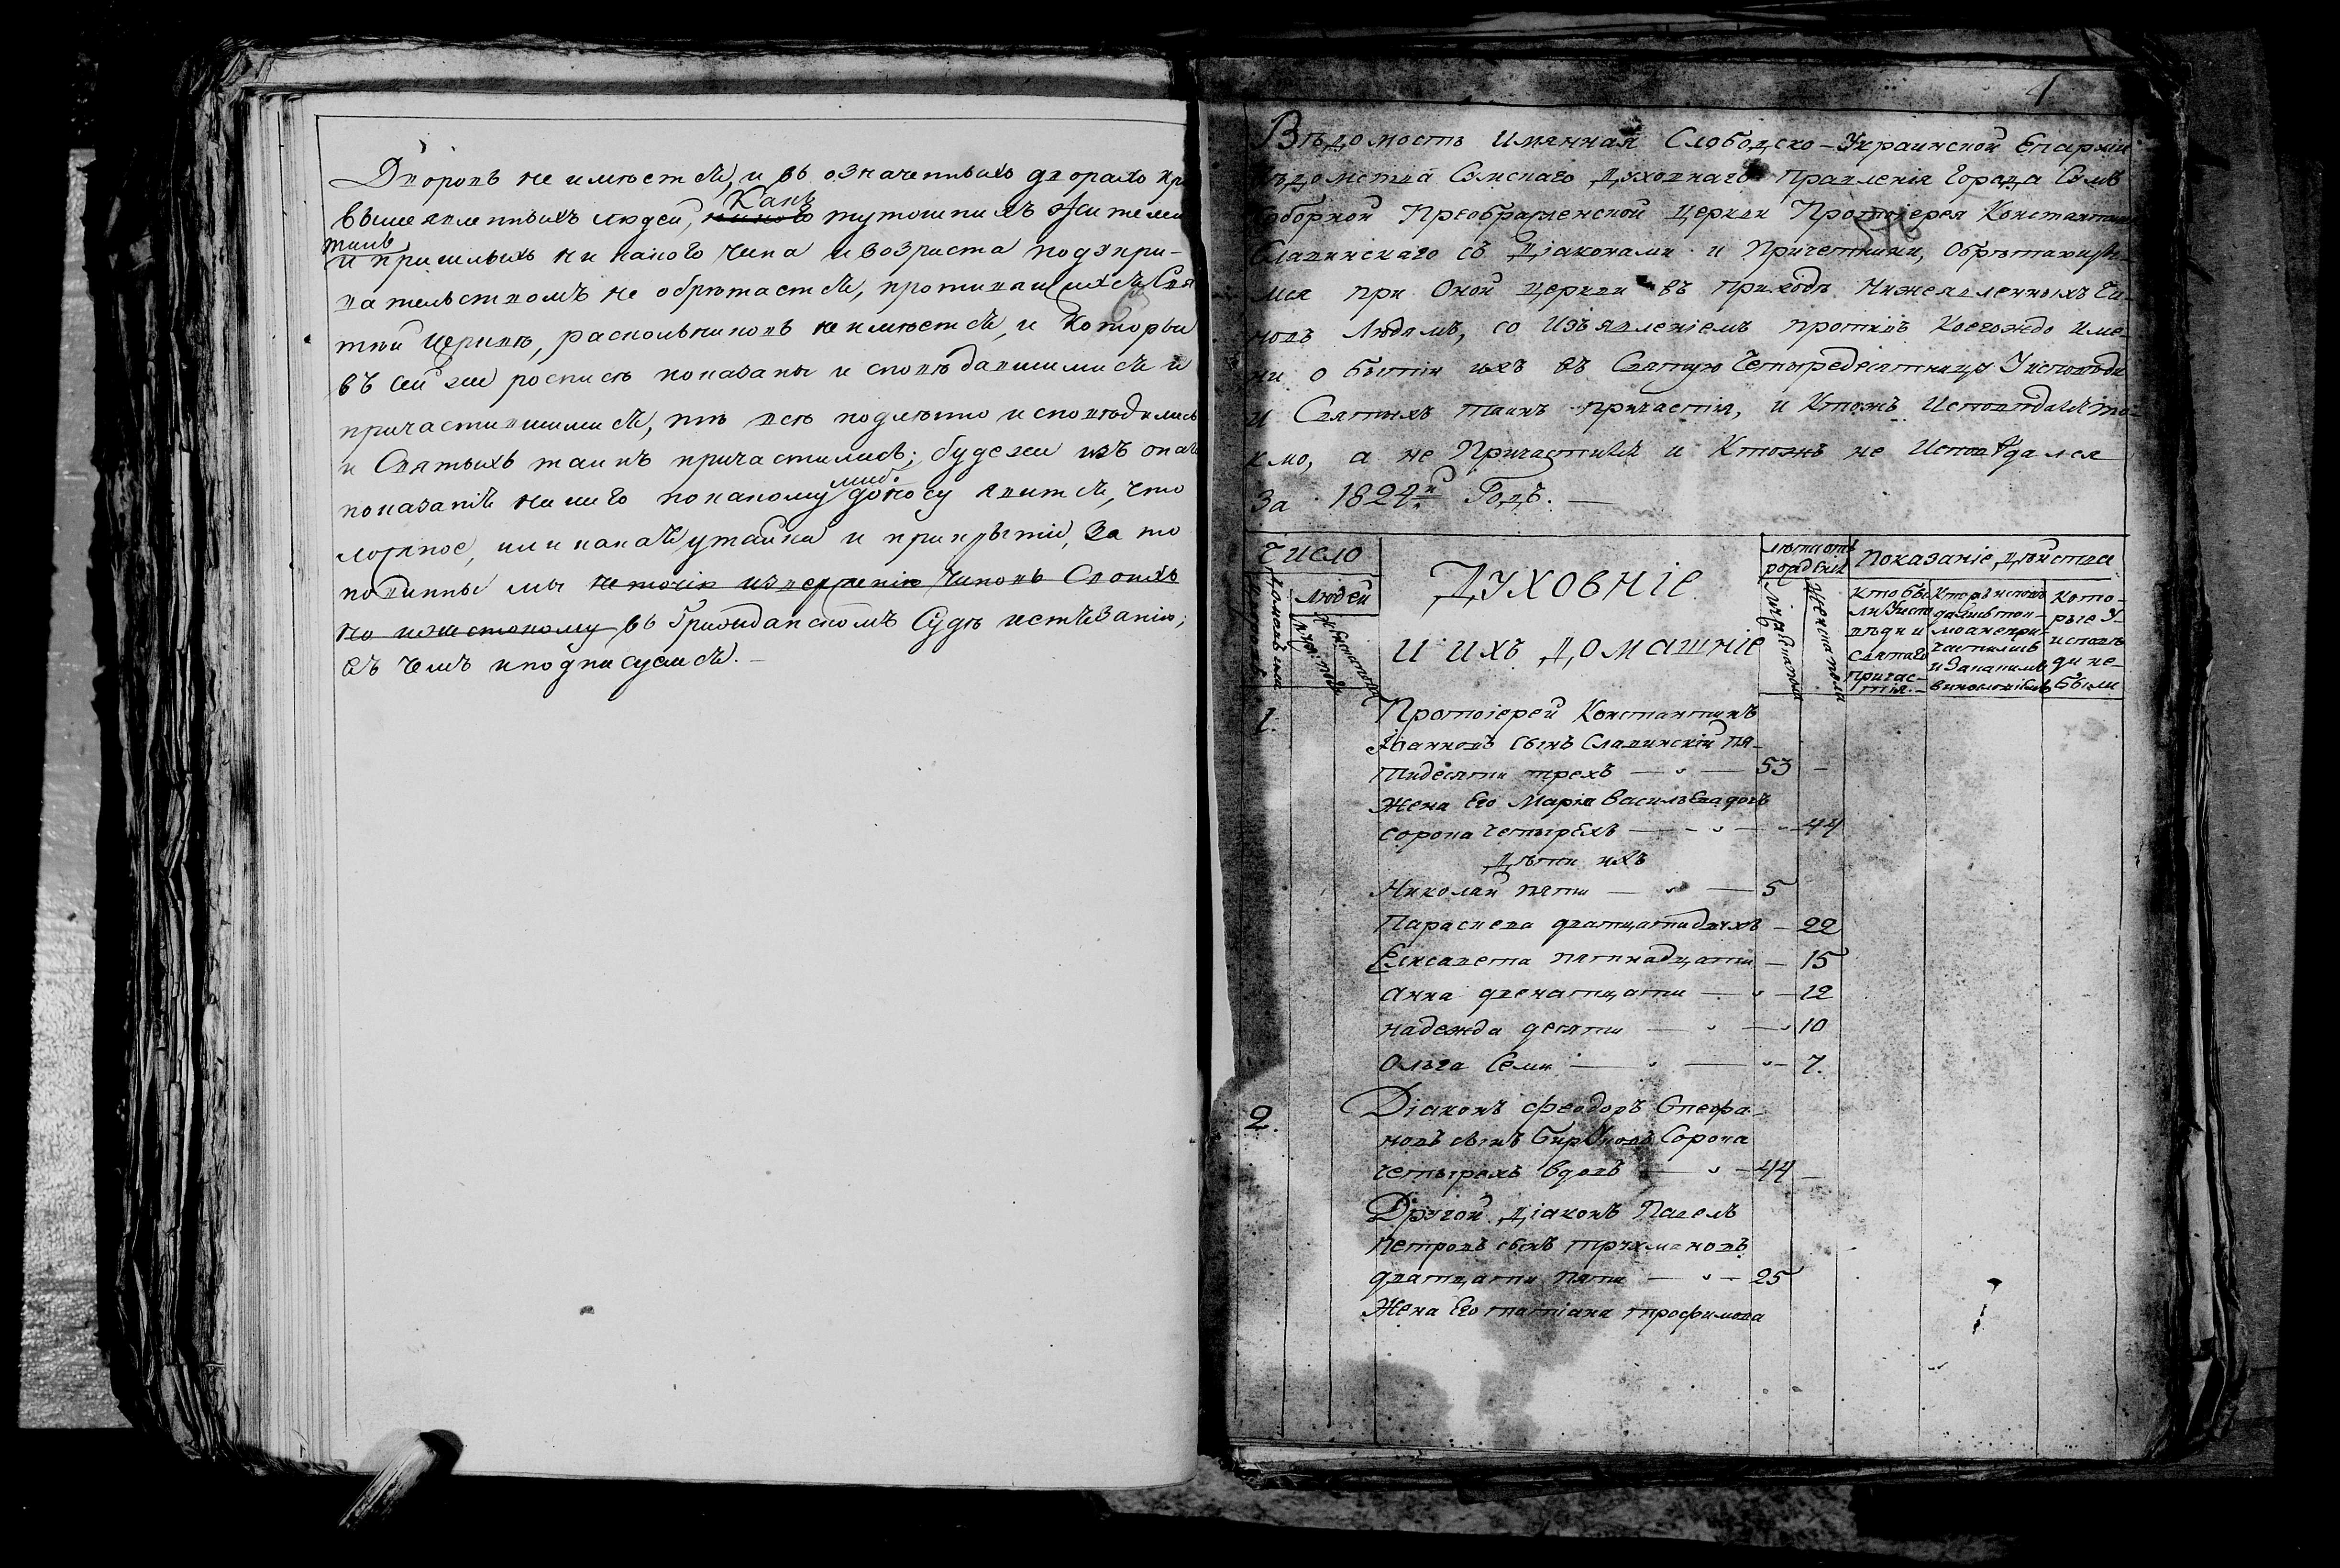 Дворовъ не имѣется, и въ означенныхъ дворахъ
вышеявленныхъ людей, Какъ тутошнихъ жителей
такъ и пришлыхъ никакого чина и возраста подъ кри-
вательствомъ не обрѣтается, противящихся Свя
той Церквѣ, раскольниковъ не имѣется, и Которыи
въ сей же росписѣ показаны исповѣдавшимися и
причастившимися, тѣ всѣ подлѣнно исповѣдились
и Святыхъ таинъ причастились; буде же изъ
показанія нашего по какому либо доносу явится, что
ложное, или какая утайка и прикрытіе, За то
повинны мы не точію изверженію Чиновъ Своихъ
но и жестокому въ Гражданскомъ Судѣ истязанію;
въ чемъ и подписуемся.
1
Вѣдомость Имянная Слободско-Украинской Епархіи
вѣдомства Сумскаго Духовнаго Правленія Города Сумъ
Соборной Преображенской церкви Протоіерея Константина
Славинскаго съ Діаконами и Причетники, Обрѣтающи-
мся при Оной церкви въ приходѣ Нижеявленныхъ Чи-
новъ Людямъ, со Изъявленіемъ противъ Коегождо име-
ни о бытіи ихъ въ Святую Четыредесятницу У исповѣди
и Святыхъ таинъ причастія, и Ктожъ Исповѣдался то-
кмо, а не Причастился и Ктожъ не Исповѣдался
За 1824й Годъ.
Число
Людей
Духовніе
и ихъ домашніе
лѣта отъ рожденія
Показаніе дѣйства
Кто были У исповѣди и святаго причастія
Кто исповѣдались токмо а не причастились и За какимъ виномъ
которые У исповѣди не были
1. Протоіерей Константинъ
Іоанновъ сынъ Славинскій пя-
тидесяти трехъ — 53
Жена Его Марія Васильева дочь
сорока четырехъ — 44
Дѣти ихъ
Николай пяти — 5
Параскева дватцати двухъ — 22
Елисавета пятнадцати — 15
Анна двенатцати — 12
надежда десяти — 10
Ольга Семи — 7.
2. Діаконъ Феодоръ Стефа-
новъ сынъ Сорока
четырехъ вдовъ — 44
Другой Діаконъ Павелъ
Петровъ сынъ
дватцати пяти — 25
Жена Его татіана трофимова